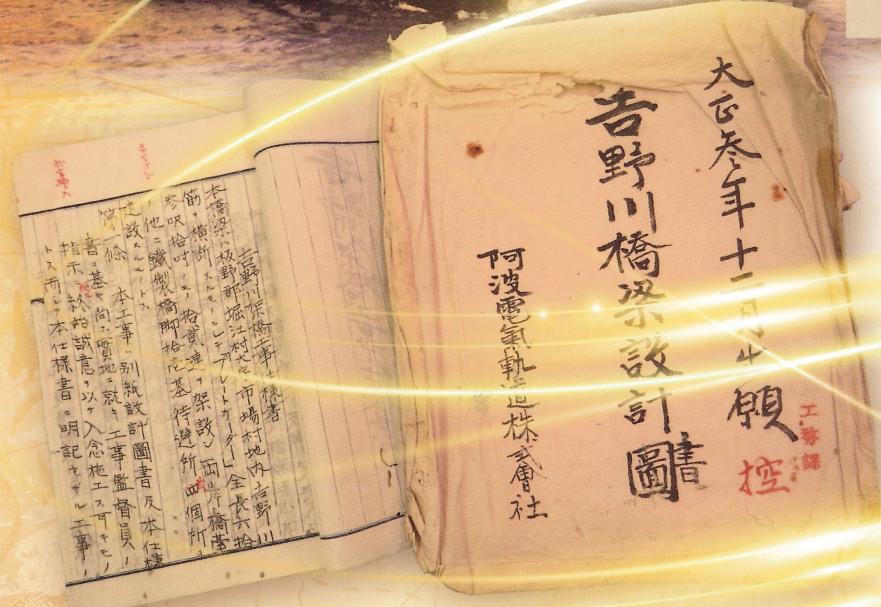 大正参年十二月出願
控
工務課
吉野川橋梁設計圖
書
阿波電氣軌道株式會社
吉野川架橋工事仕様書
本橋梁ハ板野郡堀江村大字市場村地内吉野川
筋ヲ横断スルモノニシテプレートガーダー全長六拾
参呎拾吋ノモノ拾貳連ヲ架設シ両岸橋臺
他ニ鐵製橋脚拾壱基待避所四個所ヲ
建設スルモノトス
第一條 本工事ハ別紙設計圖書及本仕様
書ニ基キ尚ホ實地ニ就キ工事監督員ノ
指示ニ従ヒ誠意ヲ以テ入念施工スベキモノ
トス而シテ本仕様書ニ明記セザル工事ノ